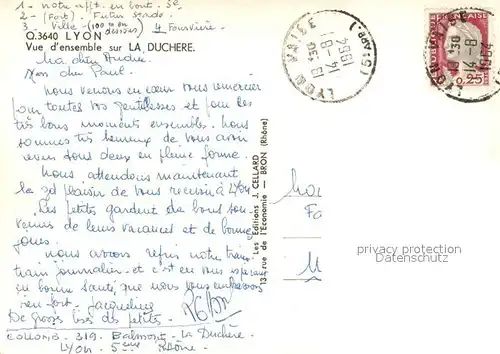 1- notre appt. en bout - 5e
2- (Fort). Futur stade.
3 - Ville - (100 m en dessous) 4 Fourvière
Q.3640 LYON
Vue d'ensemble sur LA DUCHERE.
Ma chère
Mon cher Paul.
Nous venons de tout cœur vous remercier
pour toutes vos gentillesses et pour les
très bons moments ensemble. Nous
sommes très heureux de vous avoir
revus tous deux en pleine forme.
Nous attendons maintenant
le gd plaisir de vous recevoir à Lyon.
Les petits gardent de bons sou-
venirs de leurs vacances et de bonnes
joues.
Nous avons repris notre train-
train journalier et c'est en vous espérant
en bonne santé que nous vous embrassons
bien fort. Jacqueline
De grosses bises des petits -
319 - Balmont - La Duchère -
LYON - 5ème Rhône -
Les Editions J. CELLARD
134, rue de l'Economie — BRON (Rhône)
LYON VAISE
19H30
14-8
1964
FRANÇAISE
0,25
LYON
19H30
14-8
1964
privacy protection
Datenschutz